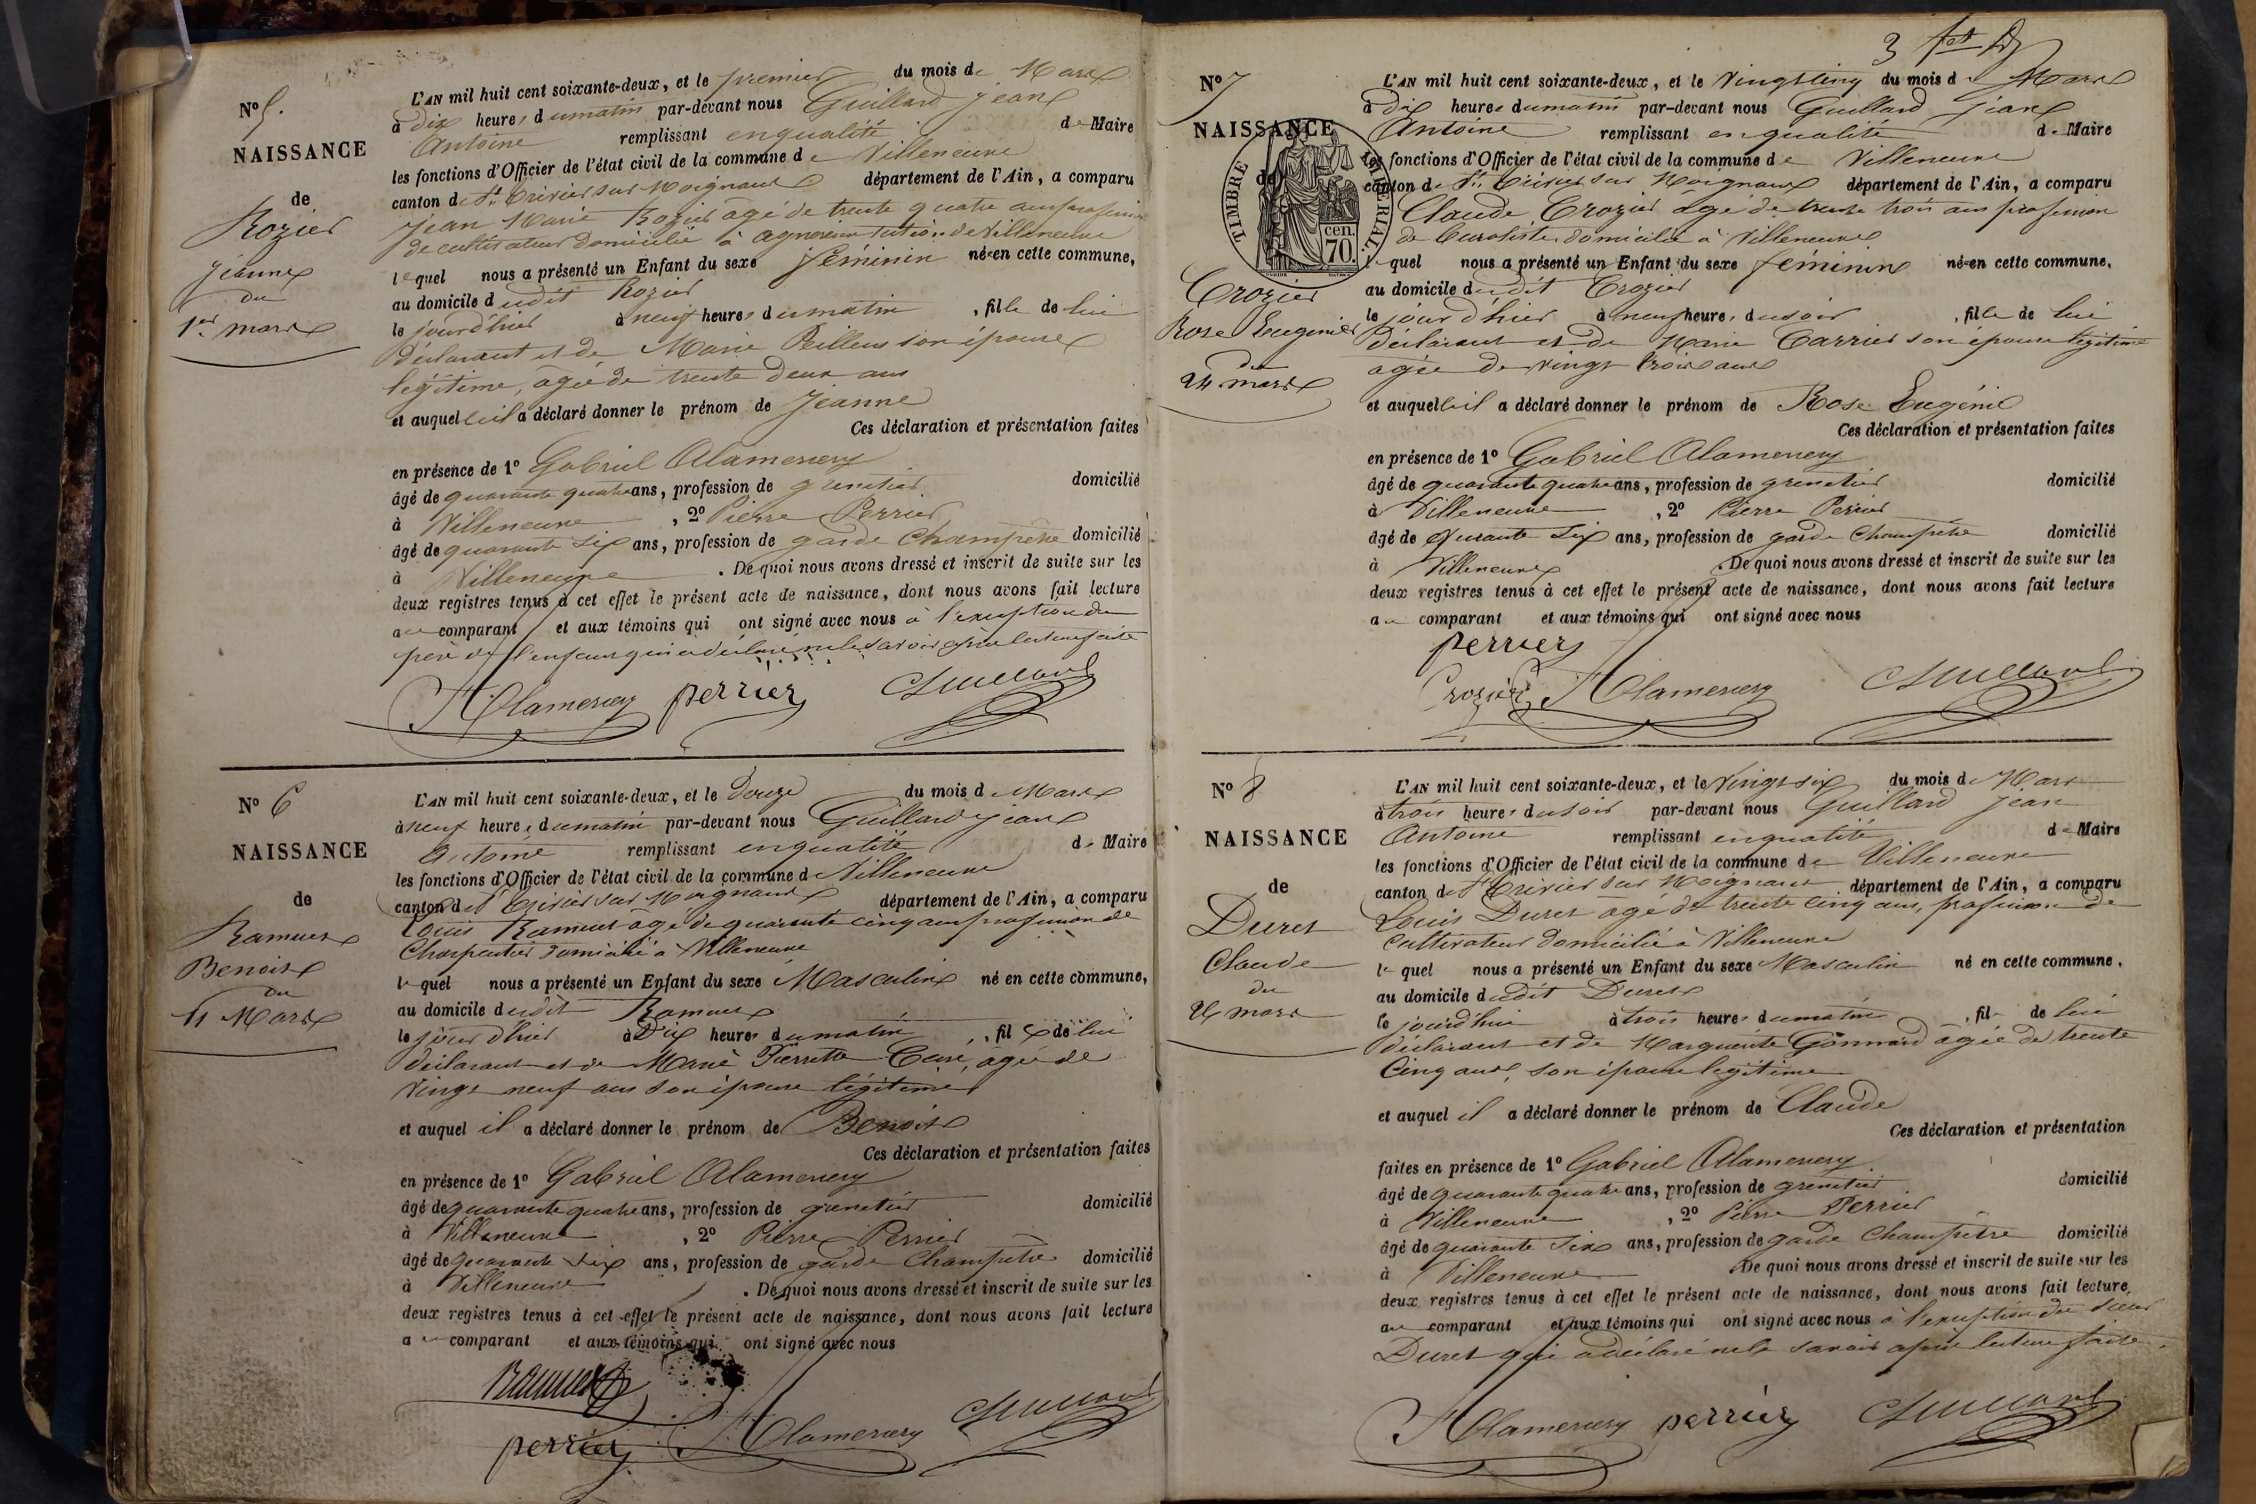 N° 5.
NAISSANCE
de
Rozier
Jeanne
du
1er mars
L'AN mil huit cent soixante-deux, et le premier du mois de Mars
à dix heures du matin par-devant nous Guillard Jean
Antoine remplissant en qualité de Maire
les fonctions d'Officier de l'état civil de la commune de Villeneuve
canton de St Trivier sur Moignans département de l'Ain, a comparu
Jean Marie Rozier âgé de trente quatre ans profession
de cultivateur domicilié à Agnereins section de Villeneuve
lequel nous a présenté un Enfant du sexe féminin née en cette commune,
au domicile dudit Rozier
le jour d'hier à neuf heures du matin, fille de lui
déclarant et de Marie Peilleux son épouse
légitime, âgée de trente deux ans
et auquel il a déclaré donner le prénom de Jeanne
Ces déclaration et présentation faites
en présence de 1° Gabriel Alamercery
âgé de quarante quatre ans, profession de grenetier domicilié
à Villeneuve, 2° Pierre Perrier
âgé de quarante six ans, profession de garde Champêtre domicilié
à Villeneuve. De quoi nous avons dressé et inscrit de suite sur les
deux registres tenus à cet effet le présent acte de naissance, dont nous avons fait lecture
au comparant et aux témoins qui ont signé avec nous à l'exception du
père de l'enfant qui a déclaré ne le savoir après lecture faite
Alamercery perrier Guillard
N° 6
NAISSANCE
de
Ramuet
Benoit
du
11 Mars
L'AN mil huit cent soixante-deux, et le douze du mois de Mars
à neuf heures du matin par-devant nous Guillard Jean
Antoine remplissant en qualité de Maire
les fonctions d'Officier de l'état civil de la commune de Villeneuve
canton de St Trivier sur Moignans département de l'Ain, a comparu
Louis Ramuet âgé de quarante cinq ans profession de
Charpentier domicilié à Villeneuve
lequel nous a présenté un Enfant du sexe Masculin né en cette commune,
au domicile dudit Ramuet
le jour d'hier à Dix heures du matin, fils de lui
déclarant et de Marie Pierrette agée de
vingt neuf ans son épouse légitime
et auquel il a déclaré donner le prénom de Benoit
Ces déclaration et présentation faites
en présence de 1° Gabriel Alamercery
âgé de quarante quatre ans, profession de grenetier domicilié
à Villeneuve, 2° Pierre Perrier
âgé de quarante six ans, profession de garde Champêtre domicilié
à Villeneuve. De quoi nous avons dressé et inscrit de suite sur les
deux registres tenus à cet effet le présent acte de naissance, dont nous avons fait lecture
au comparant et aux témoins qui ont signé avec nous
Ramuet
perrier Alamercery Guillard
3
N° 7
NAISSANCE
de
TIMBRE IMPÉRIAL.
cen.
70.
Crozier
Rose Eugénie
du
24 mars
L'AN mil huit cent soixante-deux, et le Vingt cinq du mois de Mars
à dix heures du matin par-devant nous Guillard Jean
Antoine remplissant en qualité de Maire
les fonctions d'Officier de l'état civil de la commune de Villeneuve
canton de St Trivier sur Moignans département de l'Ain, a comparu
Claude Crozier âgé de trente trois ans profession
de domicilié à Villeneuve
lequel nous a présenté un Enfant du sexe féminin née en cette commune,
au domicile dudit Crozier
le jour d'hier à neuf heures du soir, fille de lui
déclarant et de Marie Carrier son épouse légitime
agée de vingt trois ans
et auquel il a déclaré donner le prénom de Rose Eugénie
Ces déclaration et présentation faites
en présence de 1° Gabriel Alamercery
âgé de quarante quatre ans, profession de grenetier domicilié
à Villeneuve, 2° Pierre Perrier
âgé de quarante six ans, profession de garde Champêtre domicilié
à Villeneuve. De quoi nous avons dressé et inscrit de suite sur les
deux registres tenus à cet effet le présent acte de naissance, dont nous avons fait lecture
au comparant et aux témoins qui ont signé avec nous
perrier
Crozier Alamercery Guillard
N° 8
NAISSANCE
de
Duret
Claude
du
26 mars
L'AN mil huit cent soixante-deux, et le Vingt six du mois de Mars
à trois heures du soir par-devant nous Guillard Jean
Antoine remplissant en qualité de Maire
les fonctions d'Officier de l'état civil de la commune de Villeneuve
canton de St Trivier sur Moignans département de l'Ain, a comparu
Louis Duret âgé de trente cinq ans, profession de
cultivateur domicilié à Villeneuve
lequel nous a présenté un Enfant du sexe Masculin né en cette commune,
au domicile dudit Duret
le jourd'hui à trois heures du matin, fils de lui
déclarant et de Marguerite Gonnard âgée de trente
cinq ans, son épouse légitime
et auquel il a déclaré donner le prénom de Claude
Ces déclaration et présentation
faites en présence de 1° Gabriel Alamercery
âgé de quarante quatre ans, profession de grenetier domicilié
à Villeneuve, 2° Pierre Perrier
âgé de quarante six ans, profession de garde Champêtre domicilié
à Villeneuve. De quoi nous avons dressé et inscrit de suite sur les
deux registres tenus à cet effet le présent acte de naissance, dont nous avons fait lecture,
au comparant et aux témoins qui ont signé avec nous à l'exception du sieur
Duret qui a déclaré ne le savoir après lecture faite.
Alamercery perrier Guillard